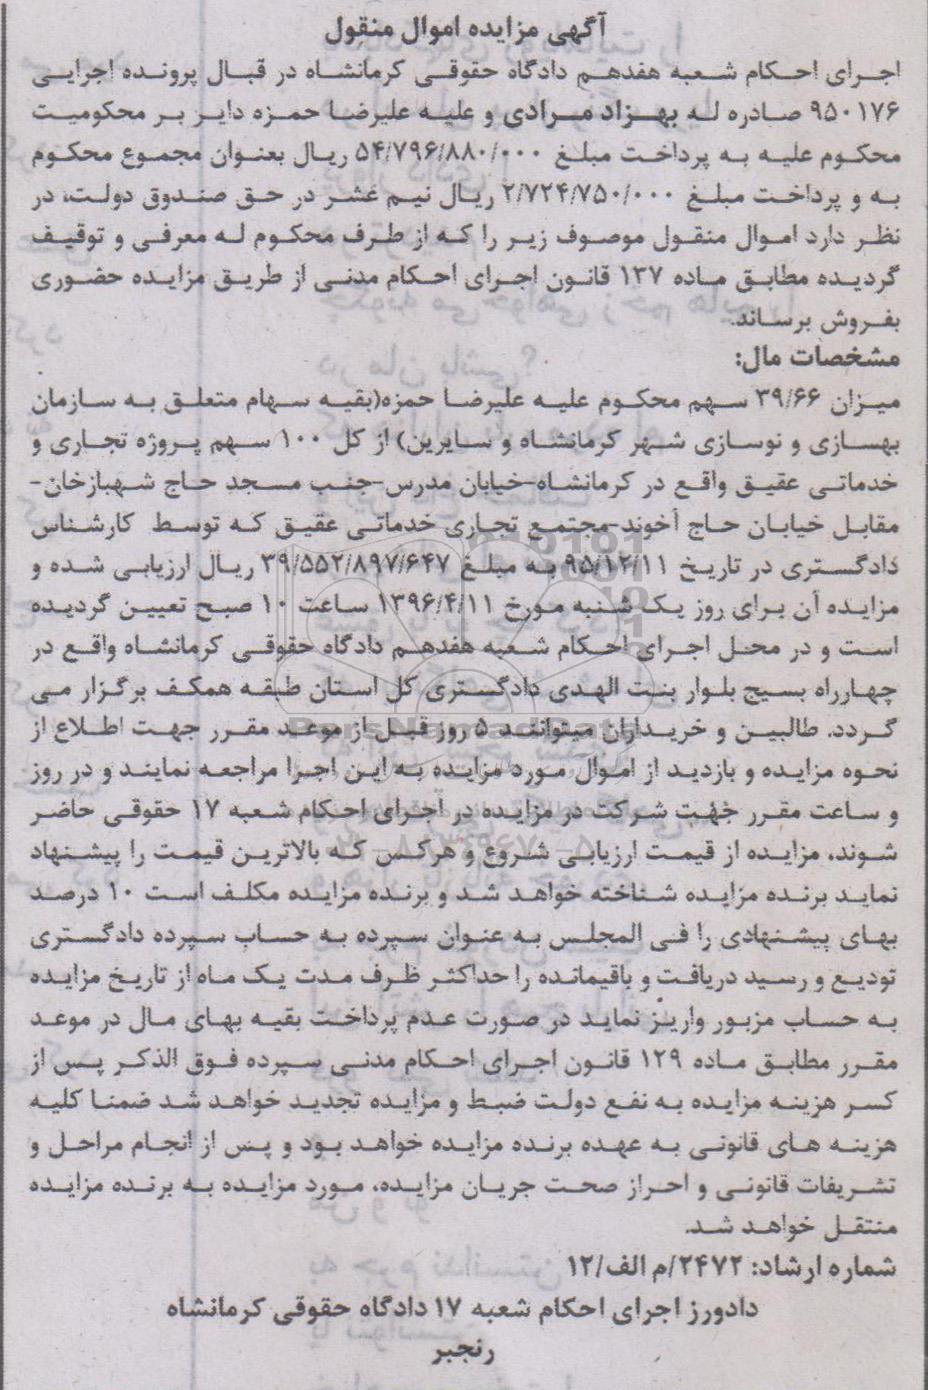 آگهی مزایده اموال منقول
اجرای احکام شعبه هفدهم دادگاه حقوقی کرمانشاه در قبال پرونده اجرایی
۹۵۰۱۷۶ صادره له بهزاد مرادی و علیه علیرضا حمزه دایر بر محکومیت
محکوم علیه به پرداخت مبلغ ۵۴/۷۹۶/۸۸۰/۰۰۰ ریال بعنوان مجموع محکوم
به و پرداخت مبلغ ۲/۷۲۴/۷۵۰/۰۰۰ ریال نیم عشر در حق صندوق دولت، در
نظر دارد اموال منقول موصوف زیر را که از طرف محکوم له معرفی و توقیف
گردیده مطابق ماده ۱۳۷ قانون اجرای احکام مدنی از طریق مزایده حضوری
بفروش برساند.
مشخصات مال:
میزان ۳۹/۶۶ سهم محکوم علیه علیرضا حمزه(بقیه سهام متعلق به سازمان
بهسازی و نوسازی شهر کرمانشاه و سایرین) از کل ۱۰۰ سهم پروژه تجاری و
خدماتی عقیق واقع در کرمانشاه-خیابان مدرس-جنب مسجد حاج شهبازخان-
مقابل خیابان حاج آخوند-مجتمع تجاری خدماتی عقیق که توسط کارشناس
دادگستری در تاریخ ۹۵/۱۲/۱۱ به مبلغ ۳۹/۵۵۲/۸۹۷/۶۴۷ ریال ارزیابی شده و
مزایده آن برای روز یک شنبه مورخ ۱۳۹۶/۴/۱۱ ساعت ۱۰ صبح تعیین گردیده
است و در محل اجرای احکام شعبه هفدهم دادگاه حقوقی کرمانشاه واقع در
چهارراه بسیج بلوار بنت الهدی دادگستری کل استان طبقه همکف برگزار می
گردد. طالبین و خریداران میتوانند ۵ روز قبل از موعد مقرر جهت اطلاع از
نحوه مزایده و بازدید از اموال مورد مزایده به این اجرا مراجعه نمایند و در روز
و ساعت مقرر جهت شرکت در مزایده در اجرای احکام شعبه ۱۷ حقوقی حاضر
شوند، مزایده از قیمت ارزیابی شروع و هرکس که بالاترین قیمت را پیشنهاد
نماید برنده مزایده شناخته خواهد شد و برنده مزایده مکلف است ۱۰ درصد
بهای پیشنهادی را فی المجلس به عنوان سپرده به حساب سپرده دادگستری
تودیع و رسید دریافت و باقیمانده را حداکثر ظرف مدت یک ماه از تاریخ مزایده
به حساب مزبور واریز نماید در صورت عدم پرداخت بقیه بهای مال در موعد
مقرر مطابق ماده ۱۲۹ قانون اجرای احکام مدنی سپرده فوق الذکر پس از
کسر هزینه مزایده به نفع دولت ضبط و مزایده تجدید خواهد شد ضمنا کلیه
هزینه های قانونی به عهده برنده مزایده خواهد بود و پس از انجام مراحل و
تشریفات قانونی و احراز صحت جریان مزایده، مورد مزایده به برنده مزایده
منتقل خواهد شد.
شماره ارشاد: ۲۴۷۲/م الف/۱۲
دادورز اجرای احکام شعبه ۱۷ دادگاه حقوقی کرمانشاه
رنجبر